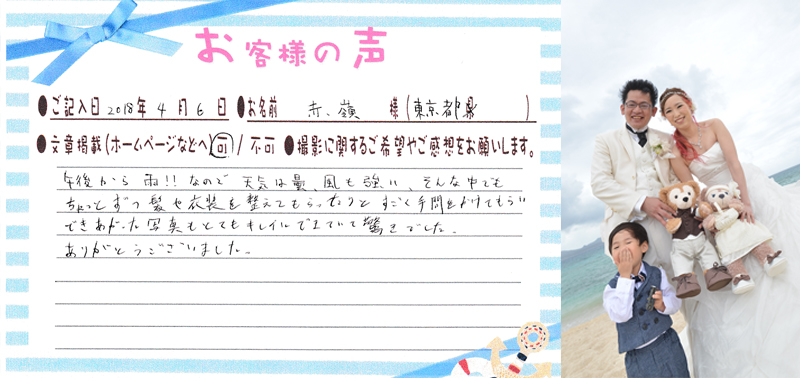 お客様の声
●ご記入日 2018年 4月 6日 ●お名前 赤嶺 様(東京都県)
●文章掲載(ホームページなどへ)可 / 不可 ●撮影に関するご希望やご感想をお願いします。
午後から雨!!なので 天気は曇、風も強い、そんな中でも
ちょっとずつ髪や衣装を整えてもらったりと すごく手間をかけてもらい
できあがった写真もとてもキレイにできていて驚きでした。
ありがとうございました。